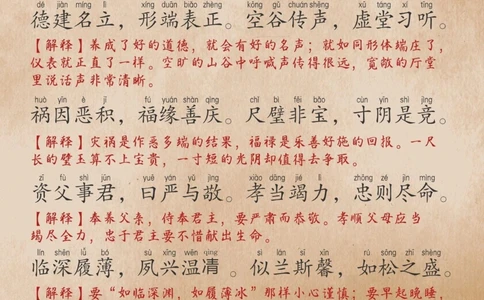 dé jiàn míng lì xíng duān biǎo zhèng kōng gǔ chuán shēng xū táng xí tīng
德建名立，形端表正。空谷传声，虚堂习听。
【解释】养成了好的道德，就会有好的名声；就如同形体端庄了，
仪表就正直了一样。空旷的山谷中呼喊声传得很远，宽敞的厅堂
里说话声非常清晰。
huò yīn è jī fú yuán shàn qìng chǐ bì fēi bǎo cùn yīn shì jìng
祸因恶积，福缘善庆。尺璧非宝，寸阴是竞。
【解释】灾祸是作恶多端的结果，福禄是乐善好施的回报。一尺
长的璧玉算不上宝贵，一寸短的光阴却值得去争取。
zī fù shì jūn yuē yán yǔ jìng xiào dāng jié lì zhōng zé jìn mìng
资父事君，曰严与敬。孝当竭力，忠则尽命。
【解释】奉养父亲，侍奉君主，要严肃而恭敬。孝顺父母应当
竭尽全力，忠于君主要不惜献出生命。
lín shēn lǚ báo sù xīng wēn qìng sì lán sī xīn rú sōng zhī shèng
临深履薄，夙兴温凊。似兰斯馨，如松之盛。
【解释】要“如临深渊，如履薄冰”那样小心谨慎；要早起晚睡，